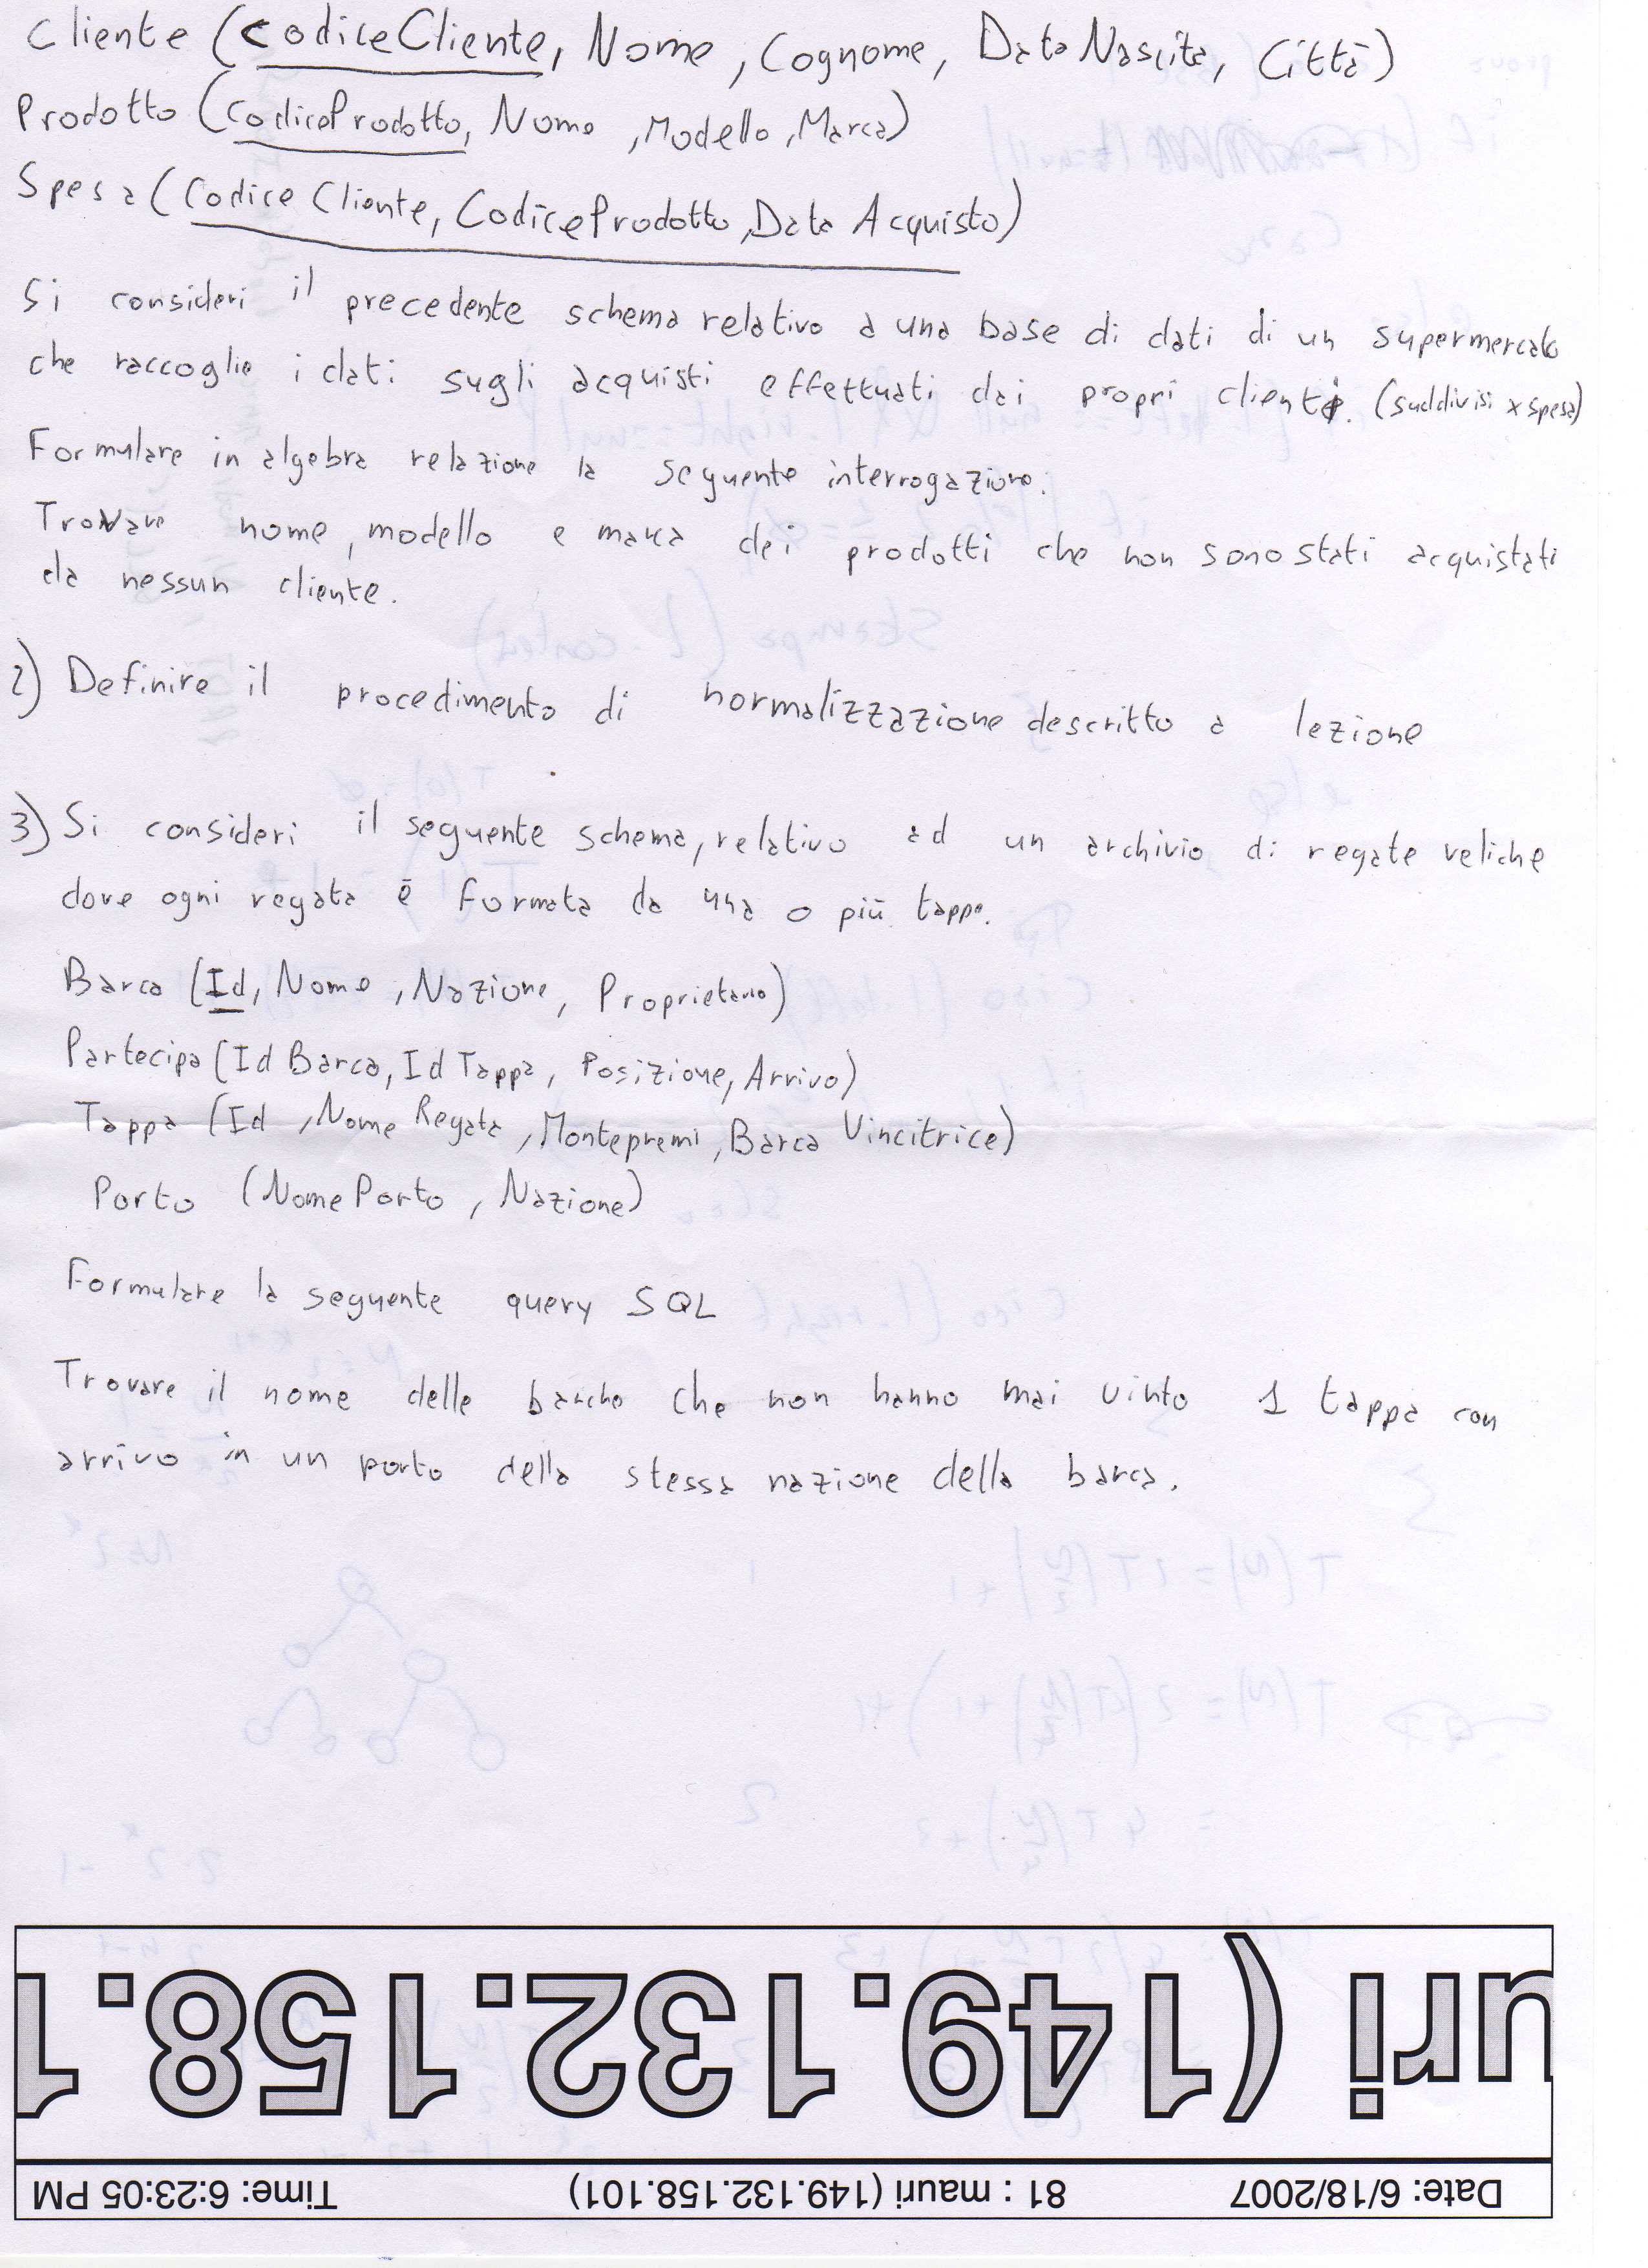 Cliente (CodiceCliente, Nome, Cognome, Data Nascita, Città)
Prodotto (CodiceProdotto, Nome, Modello, Marca)
Spesa (Codice Cliente, CodiceProdotto, Data Acquisto)
Si consideri il precedente schema relativo a una base di dati di un supermercato
che raccoglie i dati sugli acquisti effettuati dai propri clienti. (suddivisi x spesa)
Formulare in algebra relazione la seguente interrogazione:
Trovare nome, modello e marca dei prodotti che non sono stati acquistati
da nessun cliente.
2) Definire il procedimento di normalizzazione descritto a lezione
3) Si consideri il seguente schema, relativo ad un archivio di regate veliche
dove ogni regata è formata da una o più tappe.
Barca (Id, Nome, Nazione, Proprietario)
Partecipa (Id Barca, Id Tappa, Posizione, Arrivo)
Tappa (Id, Nome Regata, Montepremi, Barca Vincitrice)
Porto (Nome Porto, Nazione)
Formulare la seguente query SQL
Trovare il nome delle barche che non hanno mai vinto 1 tappa con
arrivo in un porto della stessa nazione della barca.
uri (149.132.158.1
Date: 6/18/2007 81 : mauri (149.132.158.101) Time: 6:23:05 PM